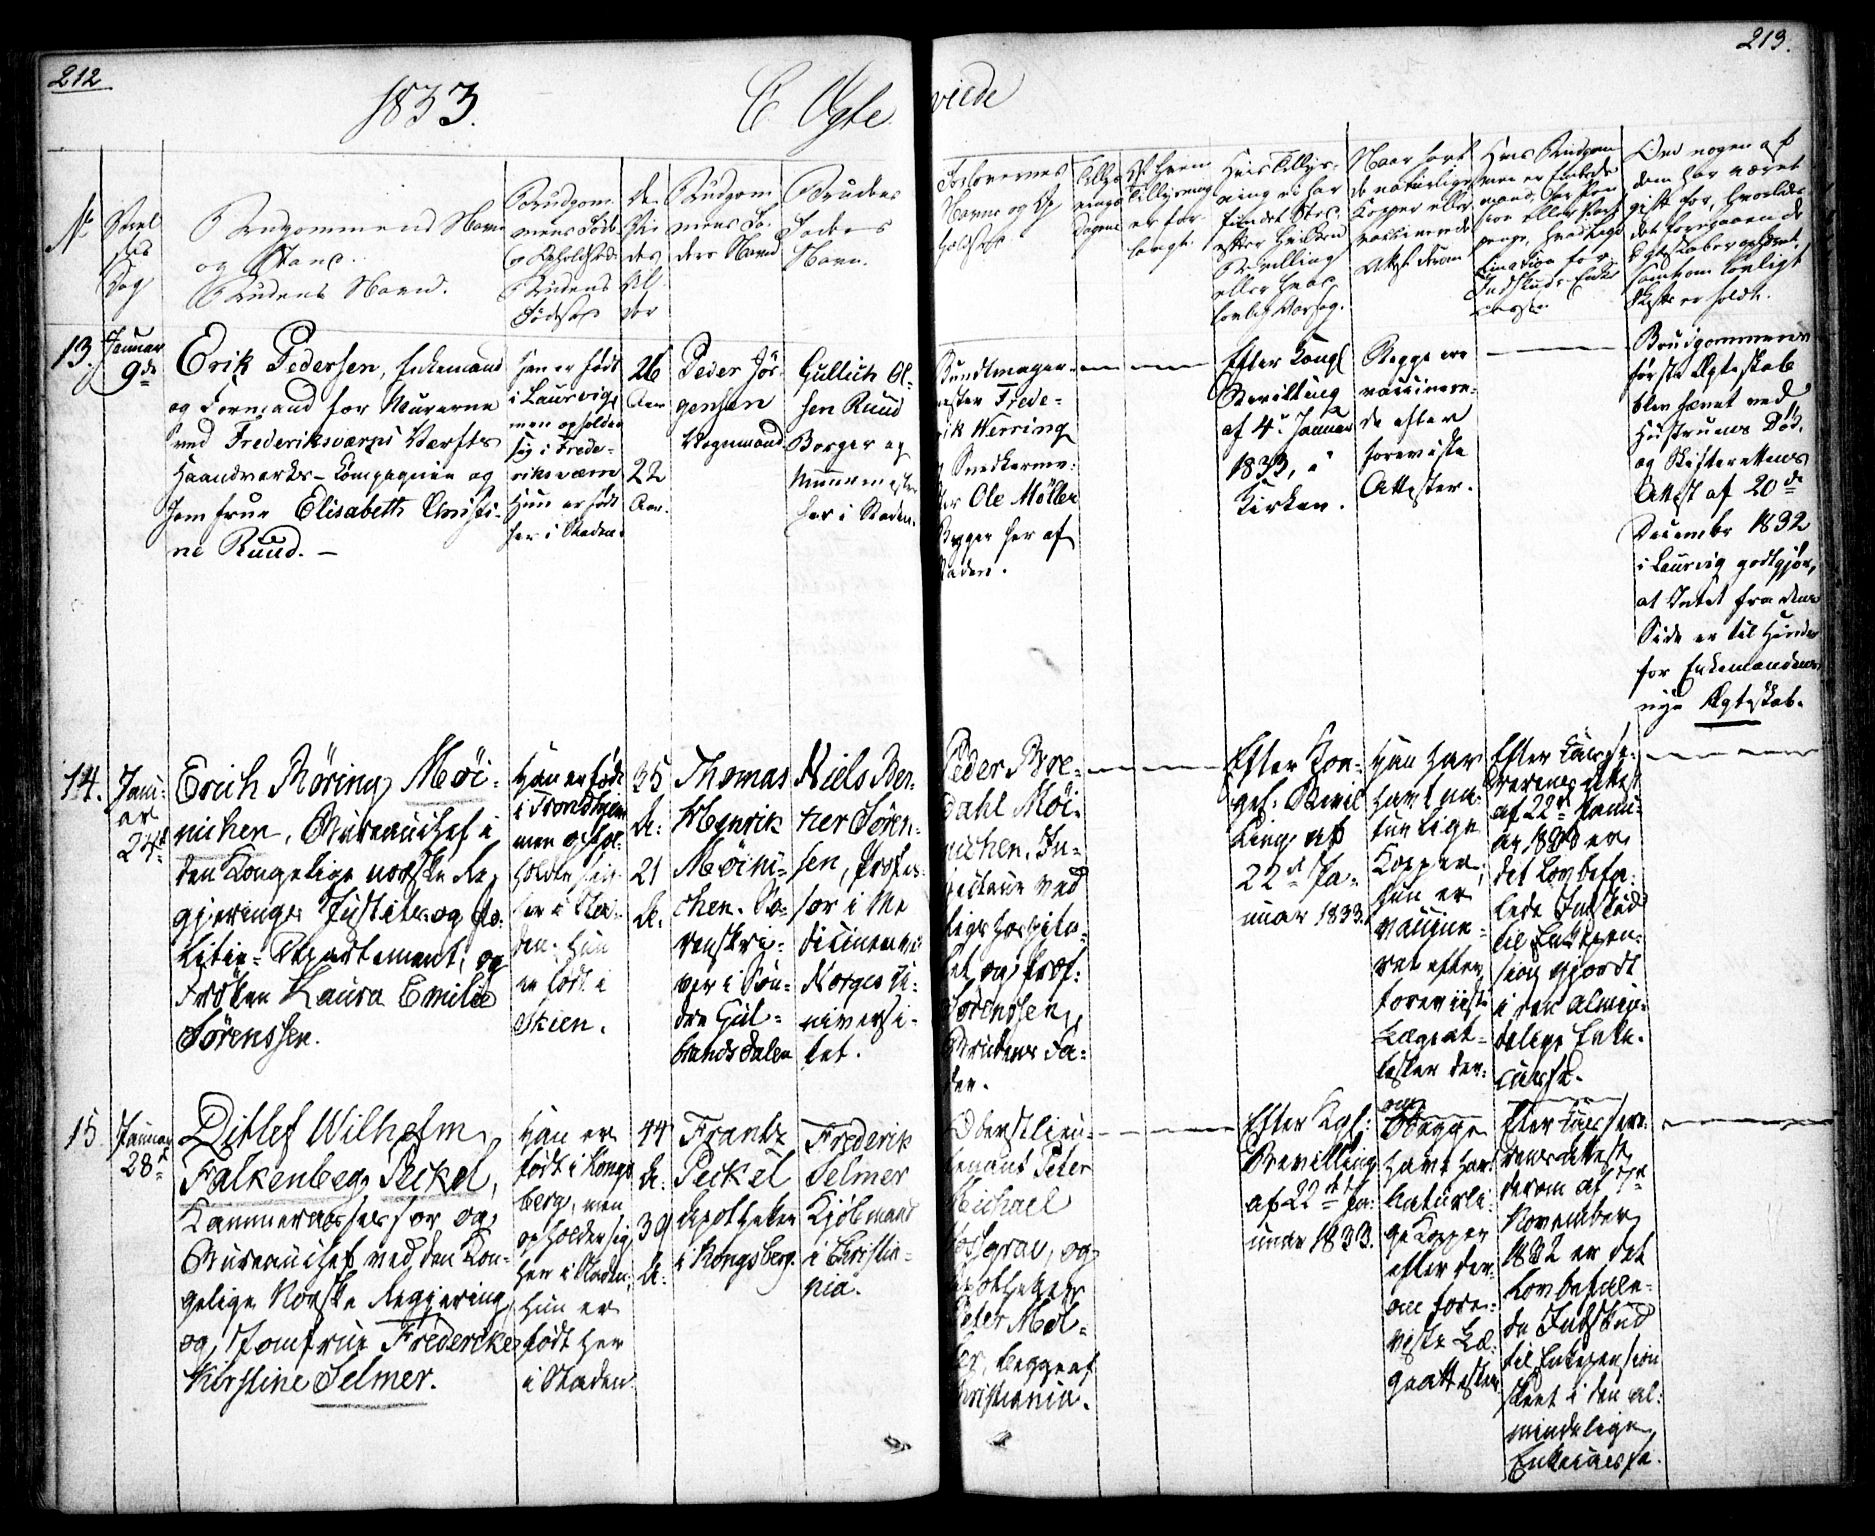 212
213.
1833.
C Ægte
viede
No
Viel
ses
Dag
Brudgommens Navn
og Stand.
Brudens Navn.
Brudgom
mens Føde
og Opholdssted
Brudens
Fødested
De
Vi
des
Al
der
Brudgom
mens Fa
ders Navn
Brudens
Faders
Navn.
Forlovernes
Navne og Op
holdsted
Tillys
nings
Dagene
Af hvem
Tillysning
er for
langt.
Hvis Tillys-
ning ei har
fundet Sted,
efter hvilken
Bevilling
eller hvor
lovlig
Naar havt
de naturlige
Kopper eller
vaccinerede
Attest derom
Om nogen af
dem har været
gift før, hvorledes
det foregaaende
Ægteskab er ophævet,
samt om lovligt
Skifte er holdt.
13.
Januar
9de
Erik Pedersen, Enkemand
og Formand for Murerne
ved Frederiksværns Værfts
Haandverks-Compagnie og
Jomfrue Elisabeth Christi-
ne Ruud. —
Han er født
i Laurvig,
men opholder
sig i Frede-
riksværn
Hun er født
her i Staden.
26
Aar
22
Aar.
Peder Jør
gensen
Vognmand
Gullich Ol-
sen Ruud
Borger og
Muurmester
her i Staden.
Bundtmager-
mester Frede-
rik Werring
og Snedkerme-
ster Ole Møller
Begge her af
Staden.
Efter Kongl
Bevilling
af 4de Januar
1833, i
Kirken.
Begge ere
vaccinere-
de efter
foreviste
Attester.
Brudgommens
første Ægteskab
blev hævet ved
Hustruens Død,
og Skifterettens
Attest af 20de
December 1832
i Laurvig godtgjør,
at Intet fra denne
Side er til Hinder
for Enkemandens
nye Ægteskab.
14.
Janu-
ar
24de
Erich Røring Møi-
nichen, Bureauchef i
den Kongelige norske Re-
gjerings Justits- og Po-
litie-Departement; og
Frøken Laura Emilie
Sørenssen.
Han er født
i Trondhjem
men ophol-
holder sig
her i Sta-
den. Hun
er født i
Skien.
35
A.
21
A.
Thomas
Henrik
Møini-
chen. So-
renskri-
ver i Søn-
dre Gul-
brandsdalen
Niels Ber-
ner Søren-
sen, Profes-
sor i Me
dicinen ved
Norges U-
niversi-
tet.
Peder Bre-
dahl Møi-
nichen. In-
specteur ved
Rigshospita-
let og Prof:
Sørenssen,
Brudens Fa-
der.
Efter Kon-
gel: Bevil
ling af
22de Ja-
nuar 1833.
Han har
havt na-
turlige
Kopper,
hun er
vaccine-
ret efter
foreviist
Lægeat-
tester der-
om
Efter Casse-
rerens Attest
af 22de Janu-
ar 1833 er
det lovbefa-
lede Indskud
til Enkepen-
sion gjordt
i den almin-
delige Enke-
casse.
15.
Januar
28de
Ditlef Wilhelm
Falkenberg Peckel,
Kammerassessor og
Bureauchef ved den Kon-
gelige Norske Regjering,
og Jomfrue Fredericke
Kirstine Selmer.
Han er
født i Kongs
berg, men
opholder sig
her i Staden,
Hun er
født her
i Staden.
44
A.
39
A.
Frantz
Peckel
Apotheker
i Kongsberg.
Frederik
Selmer
Kjøbmand
i Christia-
nia.
Oberstlieu-
tenant Peter
Michael
og
Apotheker
Peter Møl-
ler, begge af
Christiania.
Efter Kgl:
Bevilling
af 22de Ja-
nuar 1833.
Begge
havt har
naturli-
ge Kopper
efter der-
om fore-
viste Læ-
geattester.
Efter Casse-
rerens Attest
derom af 7de
November
1832 er det
lovbefale-
de Indskud
til Enkepension
skeet i den al-
mindelige
Enkecasse.